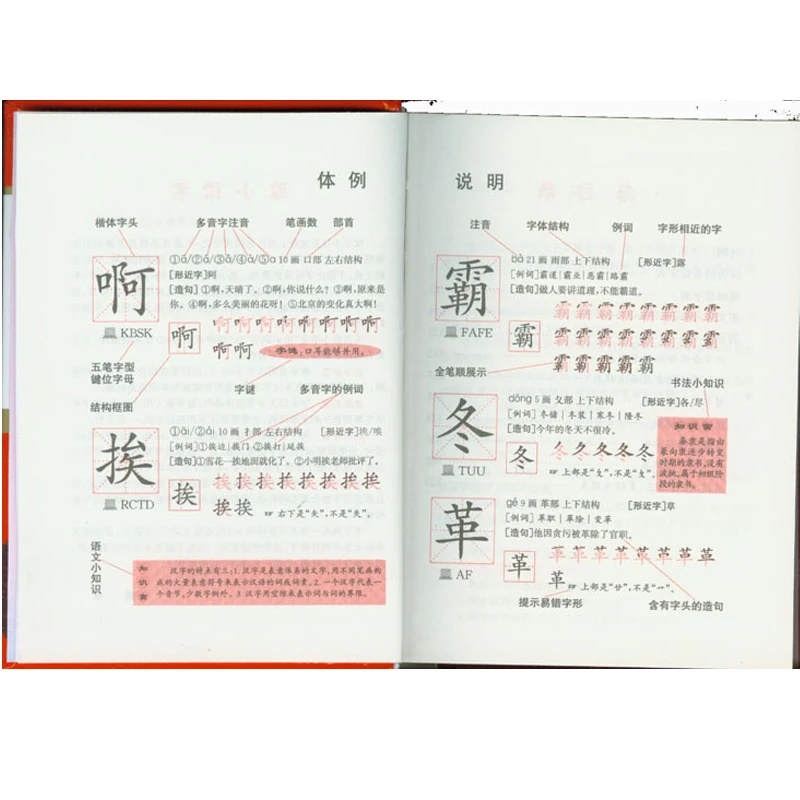 体例
楷体字头 多音字注音 笔画数 部首
啊
KBSK
①ā/②á/③ǎ/④à/⑤a 10画 口部 左右结构
[形近字]阿
[造句]①啊,天晴了。②啊,你说什么?③啊,原来是
你。④啊,多么美丽的花呀!⑤北京的变化真大啊!
啊
啊啊啊啊啊啊啊啊
啊啊 字谜:口耳能够并用。
五笔字型
键位字母
字谜 多音字的例词
结构框图
挨
RCTD
①āi/②ái 10画 扌部 左右结构 [形近字]埃/唉
[例词]①挨边|挨门·②挨打|延挨
[造句]①雪花一挨地面就化了。②小明挨老师批评了。
挨
挨挨挨挨挨挨挨挨
挨挨 ☞右下是“矢”,不是“失”。
语文小知识
知识窗
汉字的特点有三:1.汉字是表意体系的文字,用不同笔画构
成的大量表意符号来表示汉语的词或词素。2.一个汉字代表一
个音节,少数字例外。3.汉字用空格来表示词与词的界限。
说明
注音 字体结构 例词 字形相近的字
霸
FAFE
bà 21画 雨部 上下结构 [形近字]露
[例词]霸道|霸业|恶霸|路霸
[造句]做人要讲道理,不能霸道。
霸
霸霸霸霸霸霸霸霸
霸霸霸霸霸霸霸霸
霸霸霸霸霸
全笔顺展示
书法小知识
冬
TUU
dōng 5画 夂部 上下结构 [形近字]各/尽
[例词]冬储|冬装|寒冬|隆冬
[造句]今年的冬天不很冷。
冬
冬冬冬冬冬
☞上部是“夂”,不是“攵”。
知识窗
秦隶是指由
篆向隶逐步转变
时期的隶书,没有
波挑,属于初级阶
段的隶书。
革
AF
gé 9画 革部 上下结构 [形近字]草
[例词]革职|革除|变革
[造句]他因贪污被革除了官职。
革
革革革革革革革革
革 ☞上部是“廿”,不是“艹”。
提示易错字形 含有字头的造句